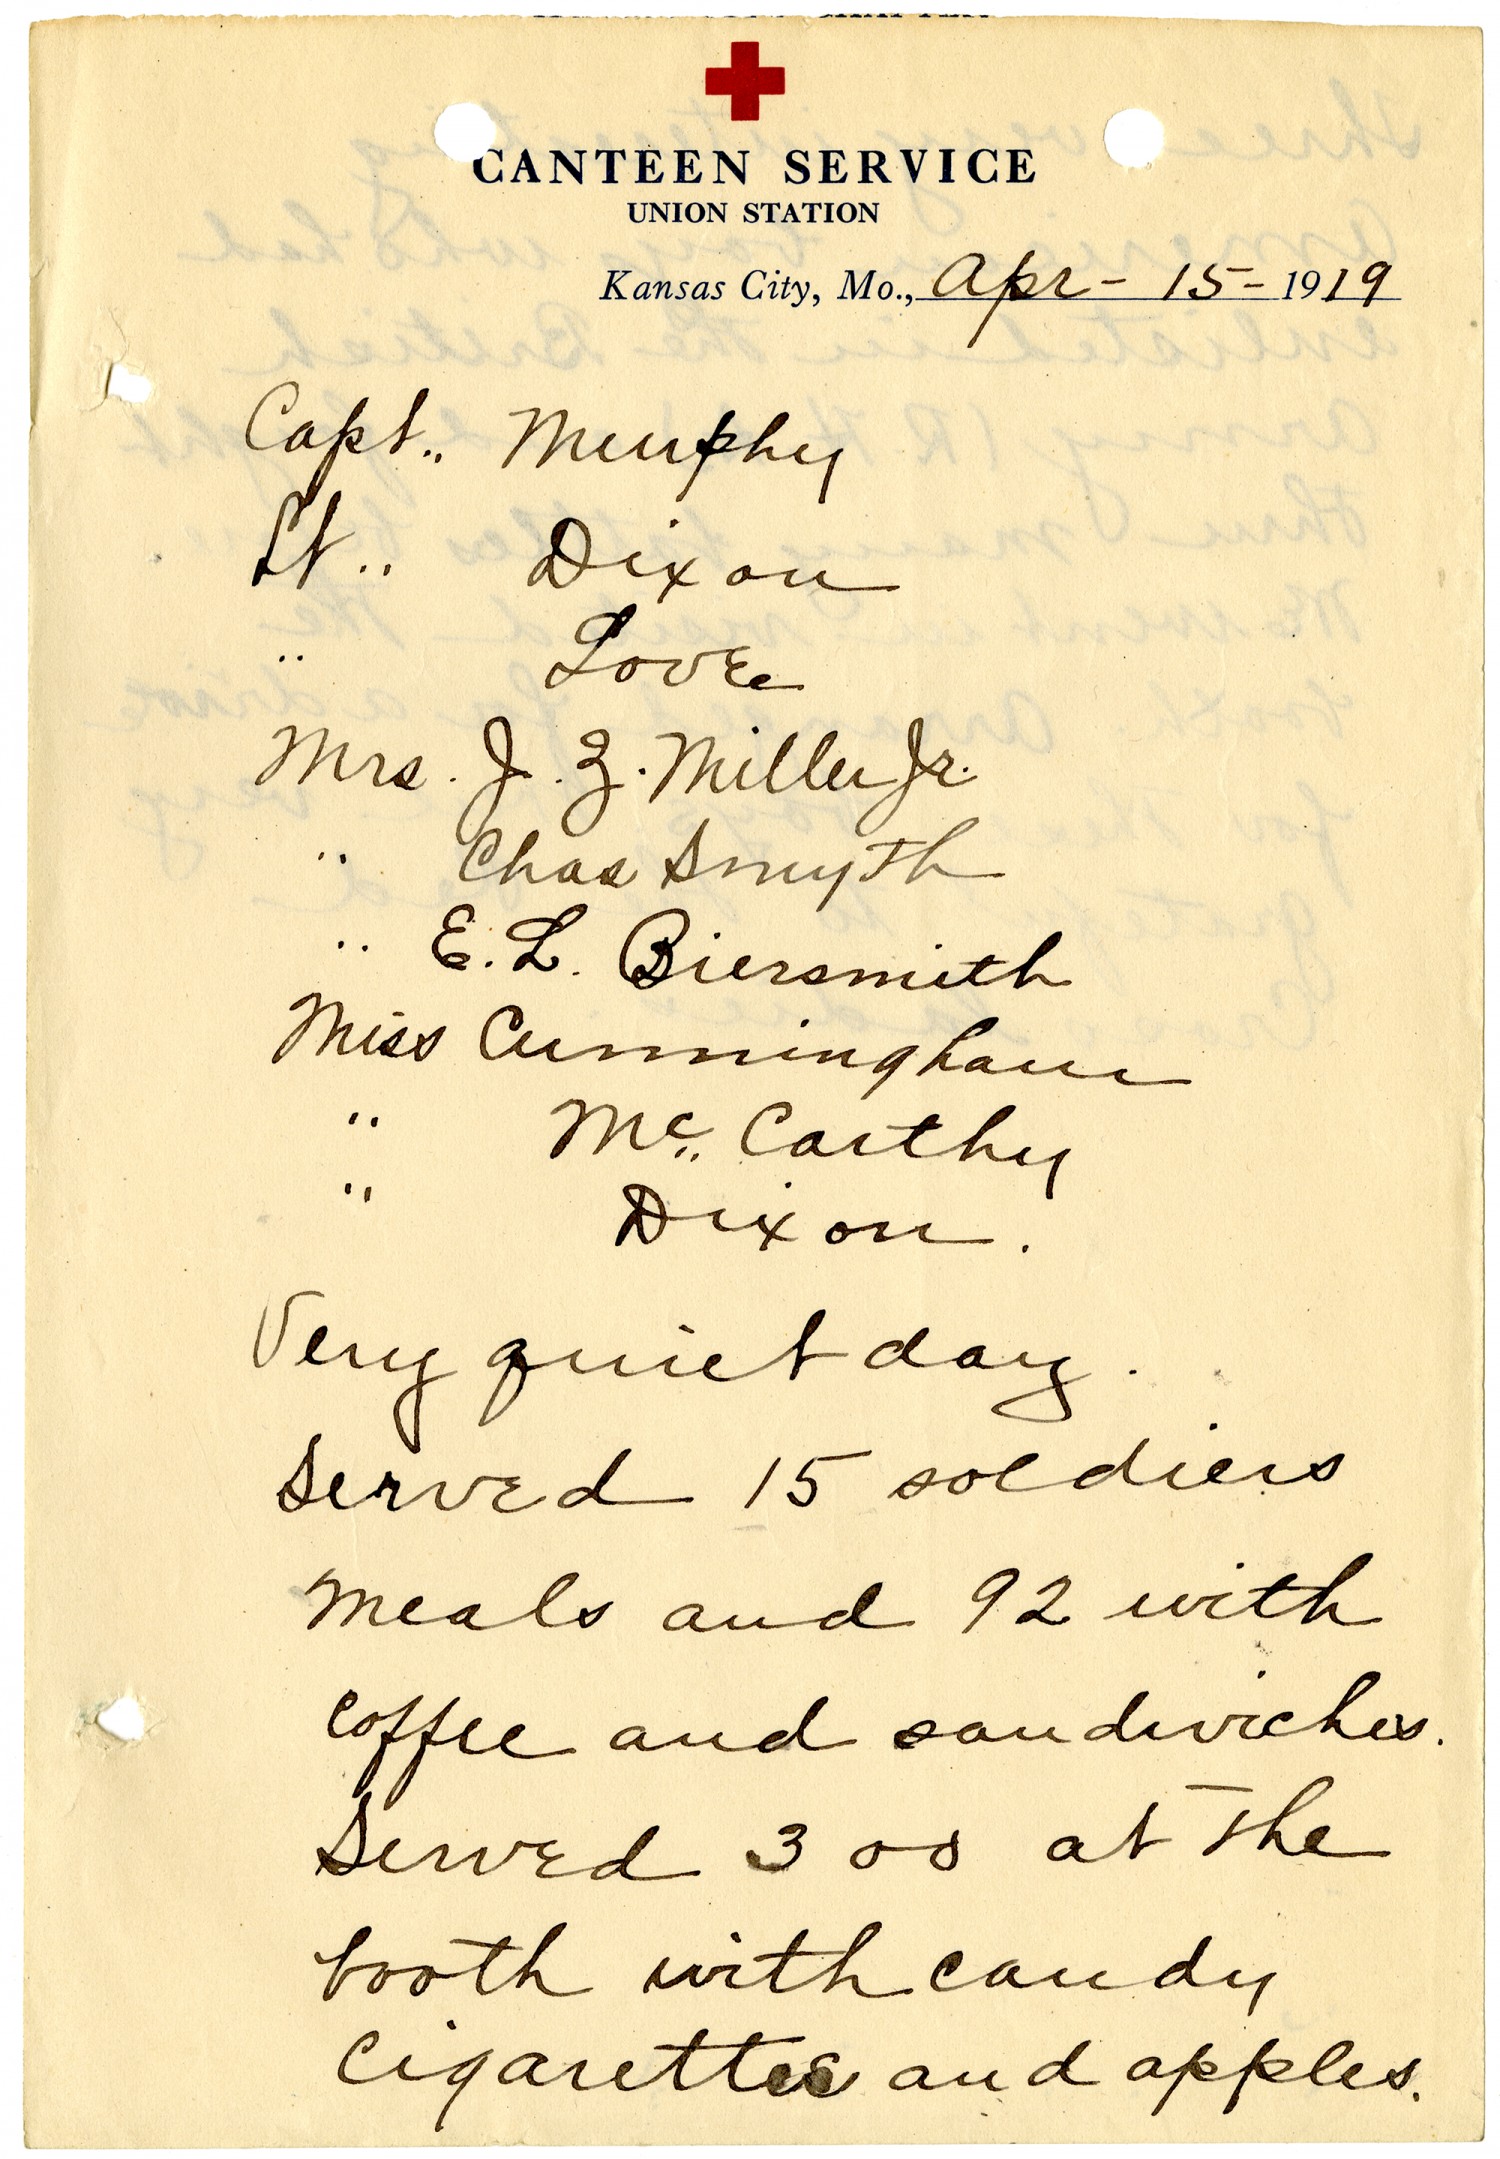 CANTEEN SERVICE
UNION STATION
Kansas City, Mo., Apr - 15 - 1919
Capt.. Murphy
Lt .. Dixon
.. Love
Mrs. J. Z. Miller Jr.
.. Chas Smyth
.. E. L. Biersmith
Miss Cunningham
" Mc.. Carthy
" Dixon.
Very quiet day.
Served 15 soldiers
meals and 92 with
coffee and sandwiches.
Served 300 at the
booth with candy
cigarettes and apples.